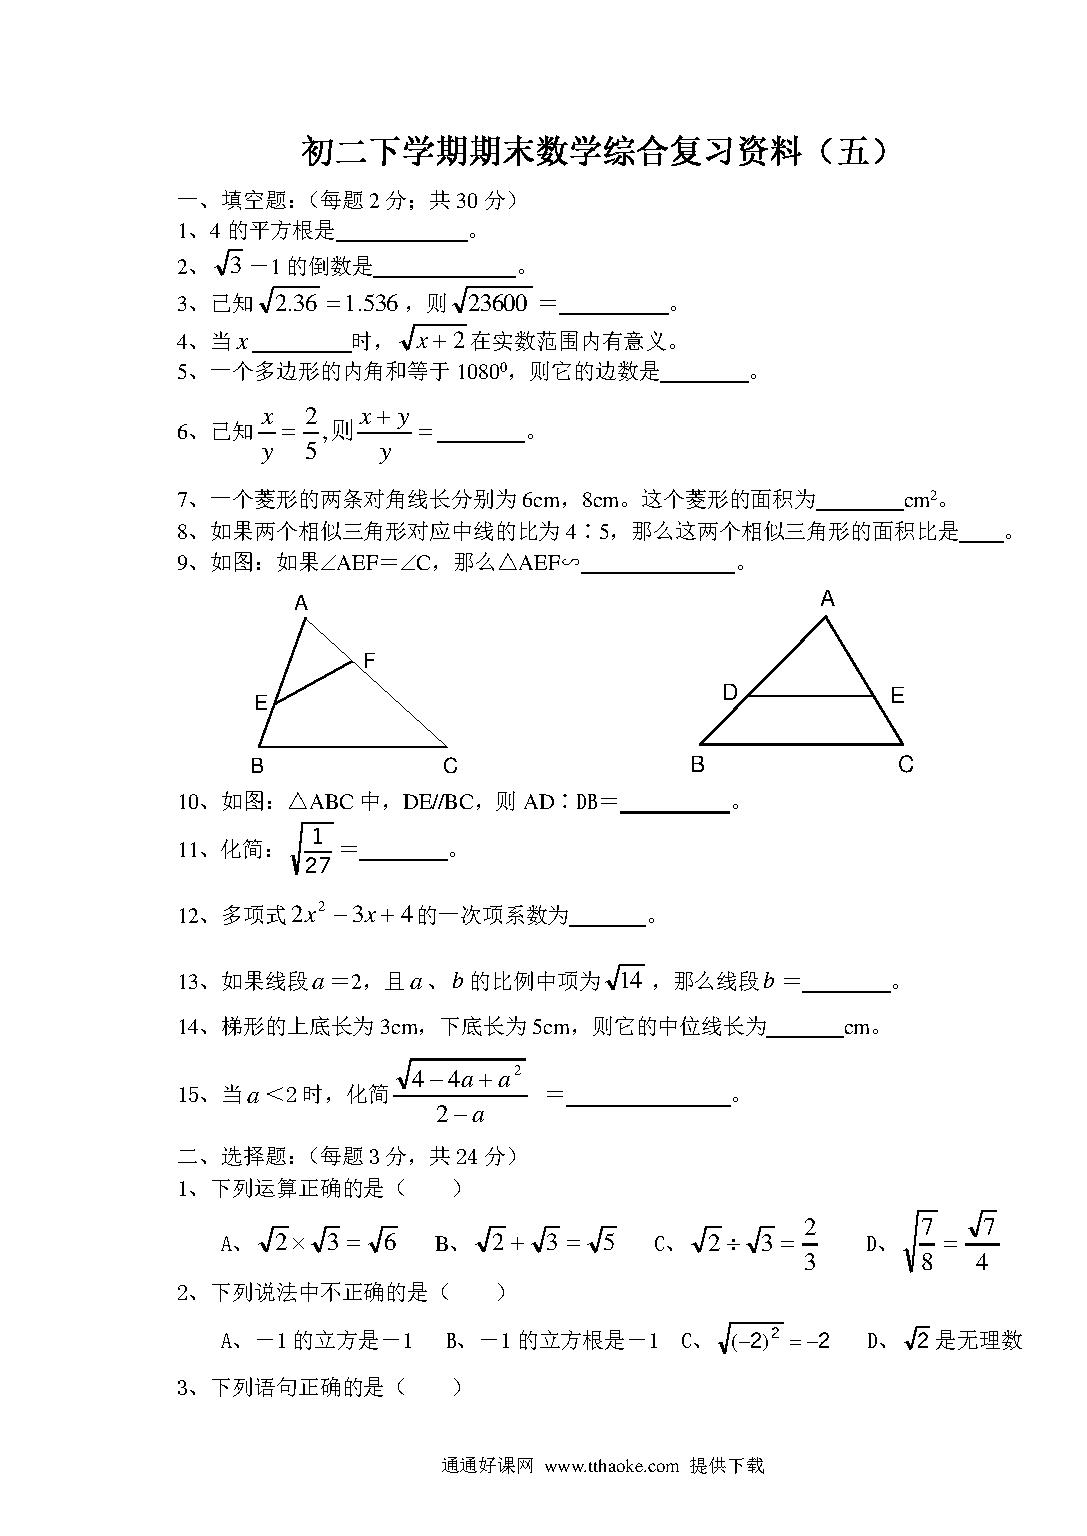 初二下学期期末数学综合复习资料（五）
一、填空题：（每题2分；共30分）
1、4的平方根是____________。
2、√3－1的倒数是_____________。
3、已知√2.36＝1.536，则√23600＝__________。
4、当x_________时，√(x+2)在实数范围内有意义。
5、一个多边形的内角和等于1080⁰，则它的边数是________。
6、已知x/y=2/5,则(x+y)/y=________。
7、一个菱形的两条对角线长分别为6cm，8cm。这个菱形的面积为________cm²。
8、如果两个相似三角形对应中线的比为4∶5，那么这两个相似三角形的面积比是____。
9、如图：如果∠AEF＝∠C，那么△AEF∽______________。
A
F
E
B
C
A
D
E
B
C
10、如图：△ABC中，DE//BC，则AD∶DB＝__________。
11、化简：√(1/27)＝________。
12、多项式2x²－3x＋4的一次项系数为_______。
13、如果线段a＝2，且a、b的比例中项为√14，那么线段b＝________。
14、梯形的上底长为3cm，下底长为5cm，则它的中位线长为_______cm。
15、当a＜2时，化简√(4－4a＋a²)/(2－a) ＝_______________。
二、选择题：（每题3分，共24分）
1、下列运算正确的是（　　）
A、√2×√3＝√6　B、√2＋√3＝√5　C、√2÷√3＝2/3　D、√(7/8)＝√7/4
2、下列说法中不正确的是（　　）
A、－1的立方是－1　B、－1的立方根是－1　C、√(−2)²＝−2　D、√2是无理数
3、下列语句正确的是（　　）
通通好课网 www.tthaoke.com 提供下载